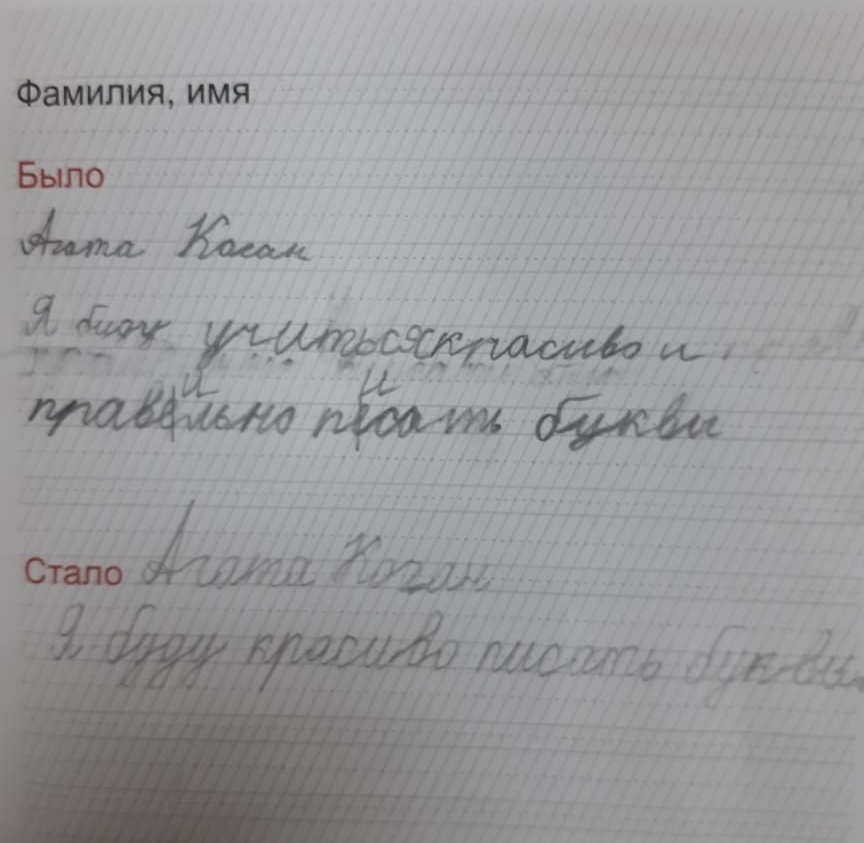 Фамилия, имя
Было
Агата Коган
Я буду учиться красиво и
правильно писать буквы
Стало Агата Коган
Я буду красиво писать буквы.